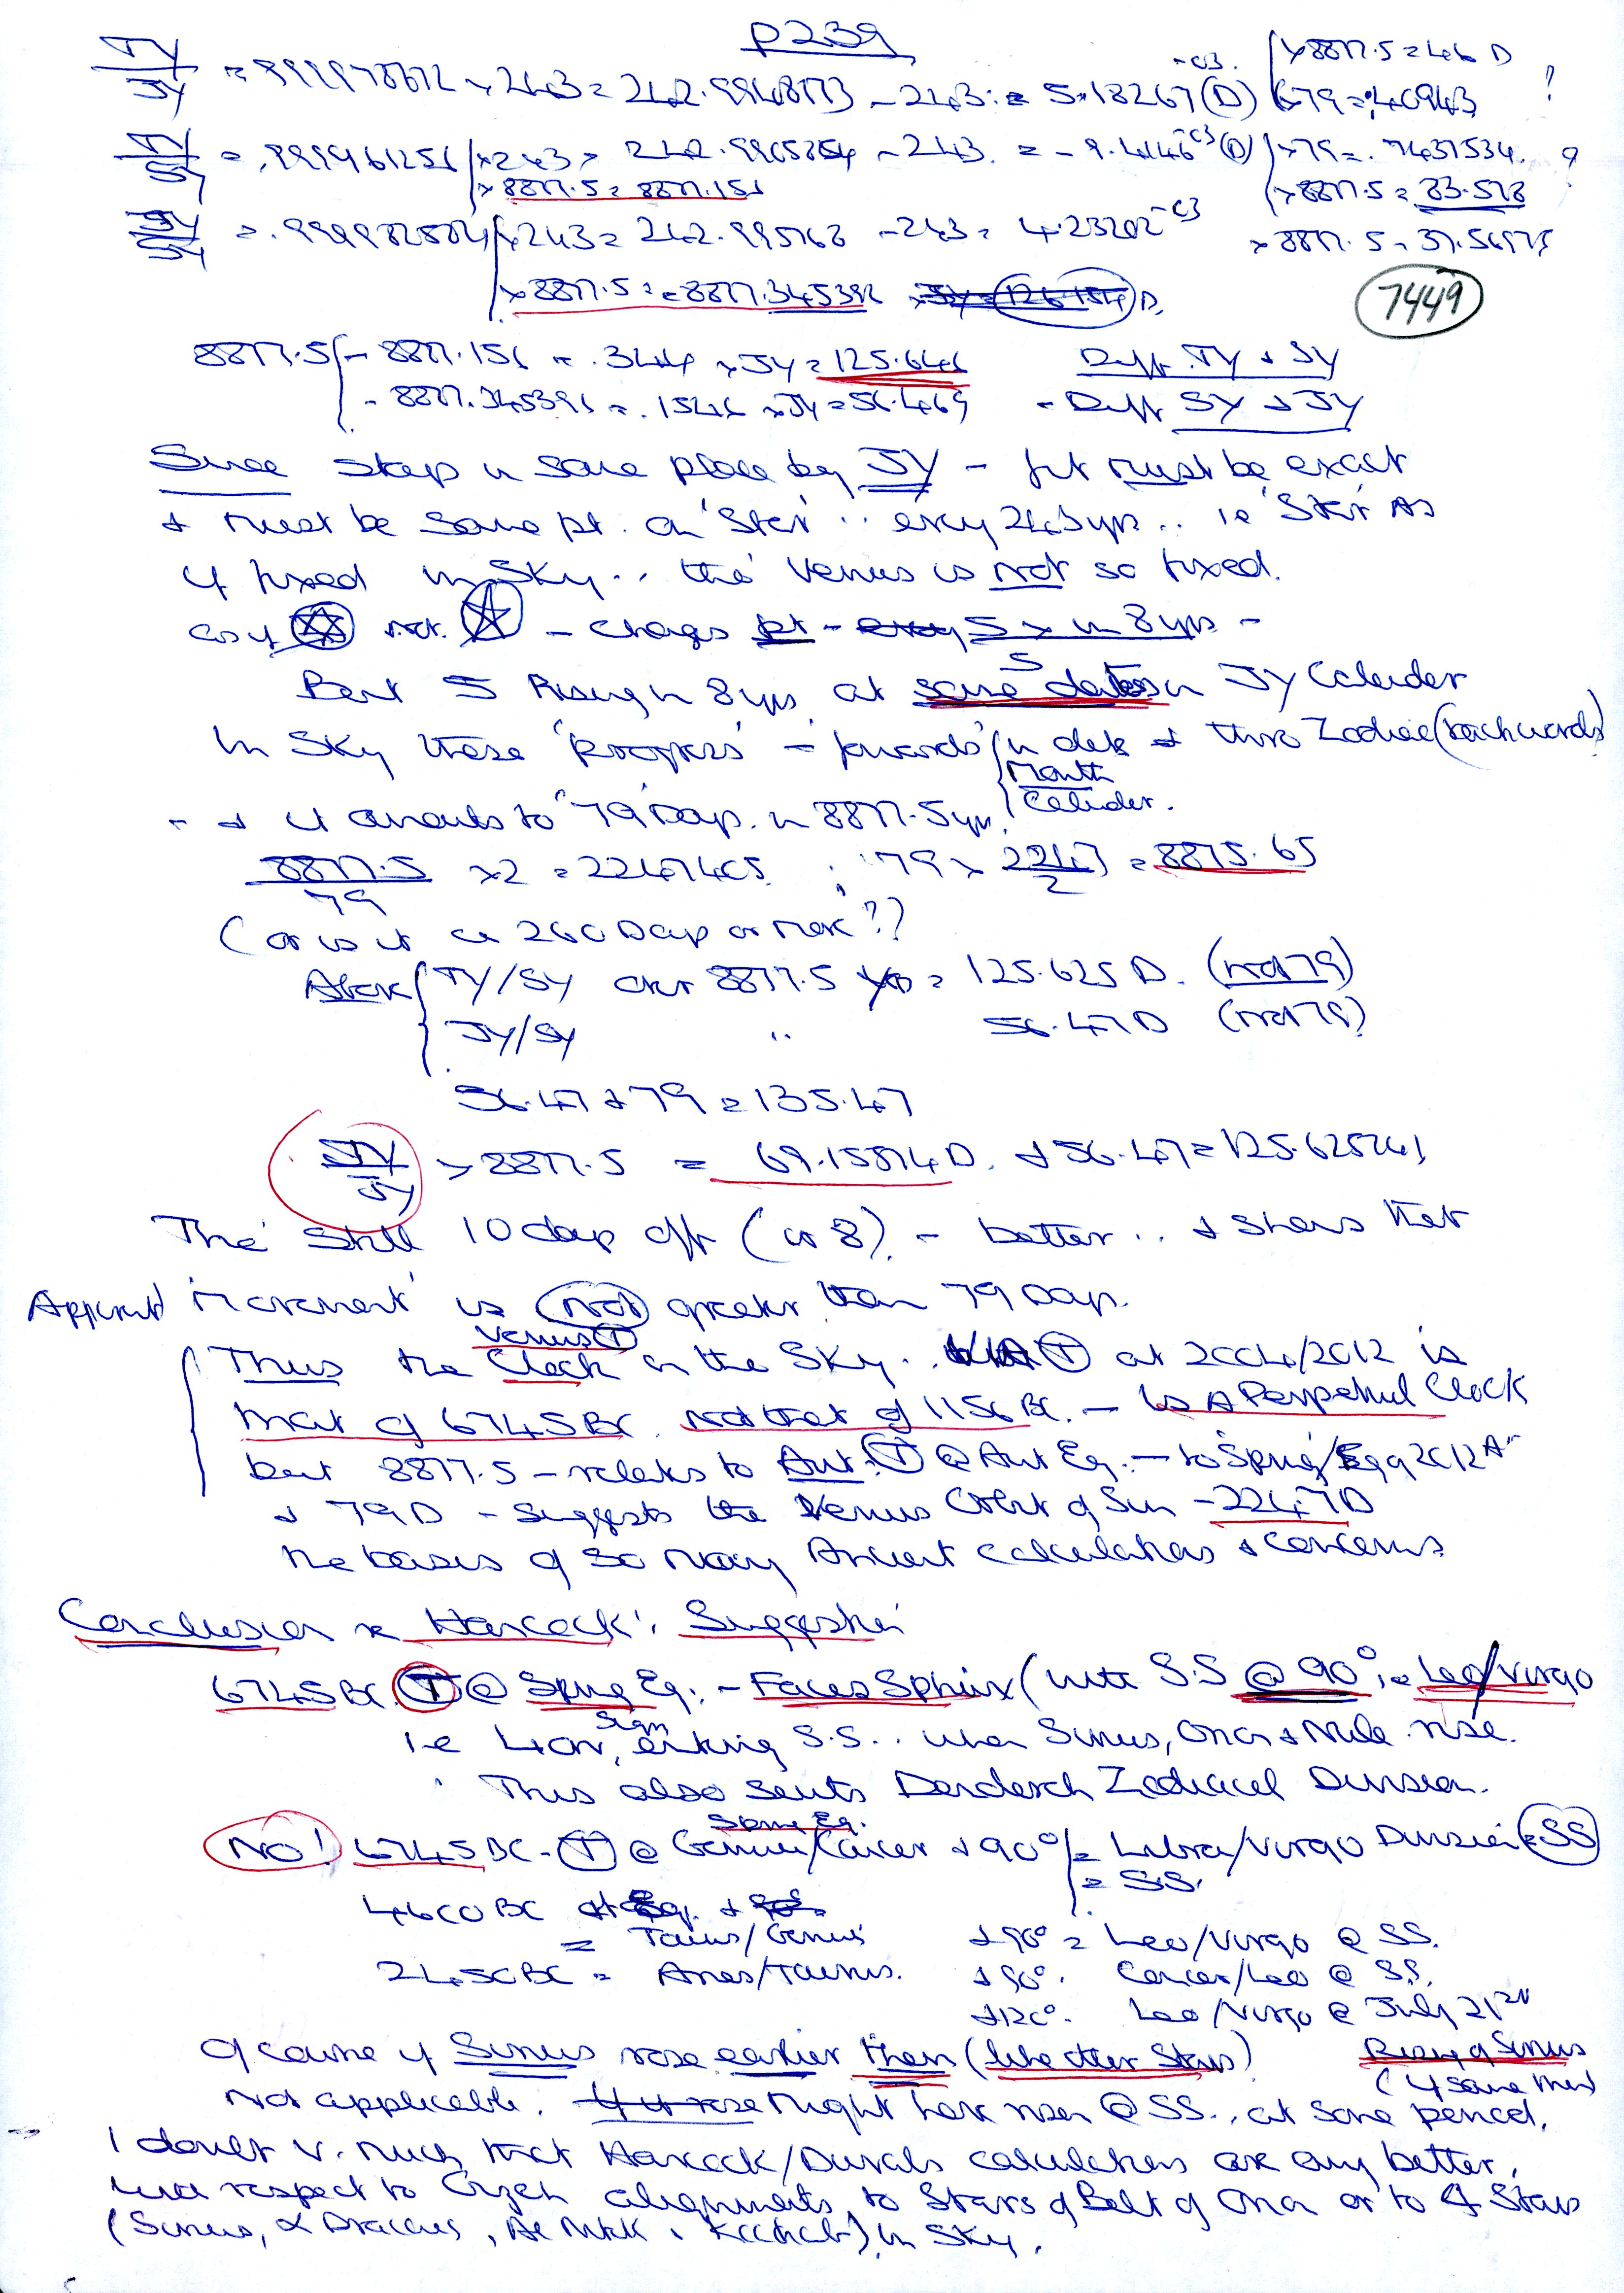 p239
TY/JY = .999978672 x 243 = 242.9948173 - 243 = 5.18267 (D)
-03.
x 8877.5 = 46 D
x 79 = .40943 ?
TY/SY = .999961251 x 243 = 242.9905854 - 243. = - 9.4146 -03 (D) x 79 = .7437534. ?
x 8877.5 = 8877.151
x 8877.5 = 83.578
JY/SY = .999982584 x 243 = 242.995768 - 243 = 4.23202 -03
x 8877.5 = 37.56975
x 8877.5 = 8877.345392
7449
8877.5 - 8877.156 = .344 x JY = 125.646 Diff. TY + SY
- 8877.345396 = .1546 x JY = 56.469 - Diff SY + JY
Since stays in same place by JY - fit must be exact
+ must be same pt. on 'Star' .. every 243 yrs .. ie 'Star' as
if fixed in Sky .. tho' Venus is not so fixed.
as if not. - changes pt - every 5 x in 8 yrs -
But 5 Rising in 8 yrs at 5 same dates in JY Calender
In Sky these 'progress' - forwards in date + thro Zodiac (backwards)
Month
Calender.
- + it amounts to "79 Days" in 8877.5 yrs.
8877.5/79 x 2 = 224.7465 ; 79 x 224.7/2 = 8875.65
(or is it ca 260 Days or more??)
Above TY/SY over 8877.5 = 125.625 D. (not 79)
JY/SY " 56.47 D (not 79)
56.47 + 79 = 135.47
TY/JY x 8877.5 = 69.15574 D. + 56.47 = 125.625241
Tho' still 10 days off (or 8) - better .. + shows that
Apparent 'movement' is (not) greater than 79 Days.
Venus (T)
Thus the Clock in the Sky .. (T) at 2004/2012 is
that of 6745 BC. Not that of 1156 BC. - is A Perpetual Clock
but 8877.5 - relates to Aut. (T) @ Aut Eq: - to Spring Eq of 2012 AD
+ 79 D - suggests the Venus Orbit of Sun - 224.7 D
the basis of so many Ancient calculations + concerns.
Conclusion re Hancock's Suggestion
6745 BC. (T) @ Spring Eq: - Faces Sphinx (with S.S @ 90° ie Leo/Virgo
i.e Lion, Sign ending S.S. . when Sirius, Orion + Nile rise.
This also suits Denderah Zodiacal Division.
(NO!) 6745 BC - (T) @ Spring Eq. Gemini/Cancer + 90° = Libra/Virgo Division @ SS
= SS.
4600 BC at Eq. + SS
= Taurus/Gemini + 90° = Leo/Virgo @ SS.
2450 BC = Aries/Taurus. + 90°. Cancer/Leo @ SS.
+ 120°. Leo/Virgo @ July 21st
Of course if Sirius rose earlier then (like other Stars) Rising of Sirius
(if same then)
Not applicable. If it rose Might have risen @ SS., at some period.
I doubt v. much that Hancock/Duvals calculations are any better,
with respect to Gizeh alignments, to Stars of Belt of Orion or to 4 Stars
(Sirius, α Draconis, Al Nitak, Kochab) in Sky.